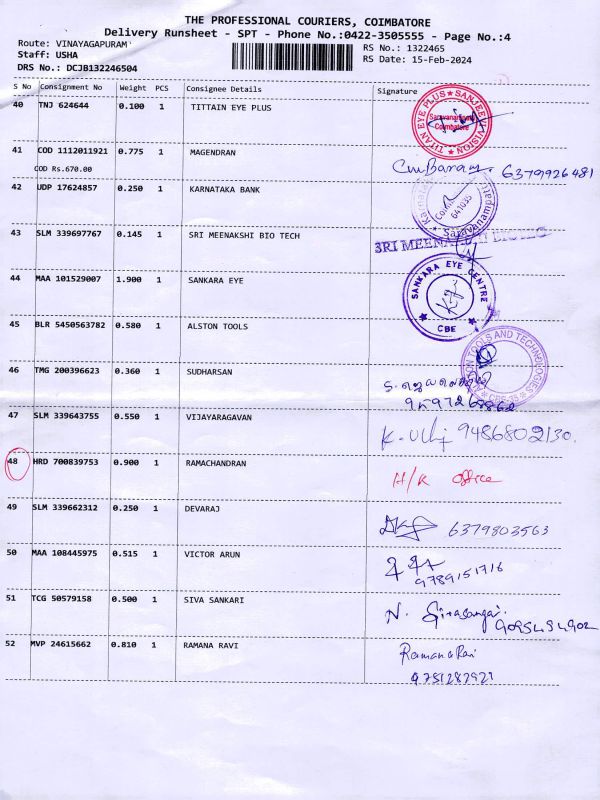 THE PROFESSIONAL COURIERS, COIMBATORE
Delivery Runsheet - SPT - Phone No.:0422-3505555 - Page No.:4
Route: VINAYAGAPURAM
RS No.: 1322465
Staff: USHA
RS Date: 15-Feb-2024
DRS No.: DCJB132246504
S No Consignment No Weight PCS Consignee Details Signature
40 TNJ 624644 0.100 1 TITTAIN EYE PLUS
TITAN EYE PLUS ★ SANJEEV VISION ★
Saravanampatti
Coimbatore
41 COD 1112011921 0.775 1 MAGENDRAN
COD Rs.670.00
6379926481
42 UDP 17624857 0.250 1 KARNATAKA BANK
641035
43 SLM 339697767 0.145 1 SRI MEENAKSHI BIO TECH
SRI MEENAKSHI
44 MAA 101529007 1.900 1 SANKARA EYE
SANKARA EYE CENTRE
★ CBE ★
45 BLR 5450563782 0.580 1 ALSTON TOOLS
ALSTON TOOLS AND TECHNOLOGIES
CBE-35
46 TMG 200396623 0.360 1 SUDHARSAN
47 SLM 339643755 0.550 1 VIJAYARAGAVAN
9486802130.
48 HRD 700839753 0.900 1 RAMACHANDRAN
H/R office
49 SLM 339662312 0.250 1 DEVARAJ
6379803563
50 MAA 108445975 0.515 1 VICTOR ARUN
9789151716
51 TCG 50579158 0.500 1 SIVA SANKARI
N.
9095494902
52 MVP 24615662 0.810 1 RAMANA RAVI
Ramana Ravi
9751287921